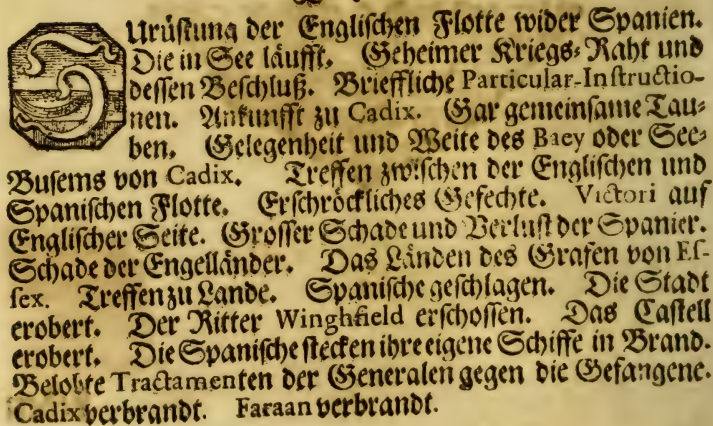 ZUrüſtung der Engliſchen Flotte wider Spanien.
Die in See läufft. Geheimer Kriegs-Raht und
deſſen Beſchluß. Brieffliche Particular-Inſtructio-
nen. Ankunfft zu Cadix. Gar gemeinſame Tau-
ben. Gelegenheit und Weite des Baey oder See-
Buſems von Cadix. Treffen zwiſchen der Engliſchen und
Spaniſchen Flotte. Erſchröckliches Gefechte. Victori auf
Engliſcher Seite. Groſſer Schade und Verluſt der Spanier.
Schade der Engelländer. Das Länden des Grafen von Eſ-
ſex. Treffen zu Lande. Spaniſche geſchlagen. Die Stadt
erobert. Der Ritter Winghfield erſchoſſen. Das Caſtell
erobert. Die Spaniſche ſtecken ihre eigene Schiffe in Brand.
Belobte Tractamenten der Generalen gegen die Gefangene.
Cadix verbrandt. Faraan verbrandt.